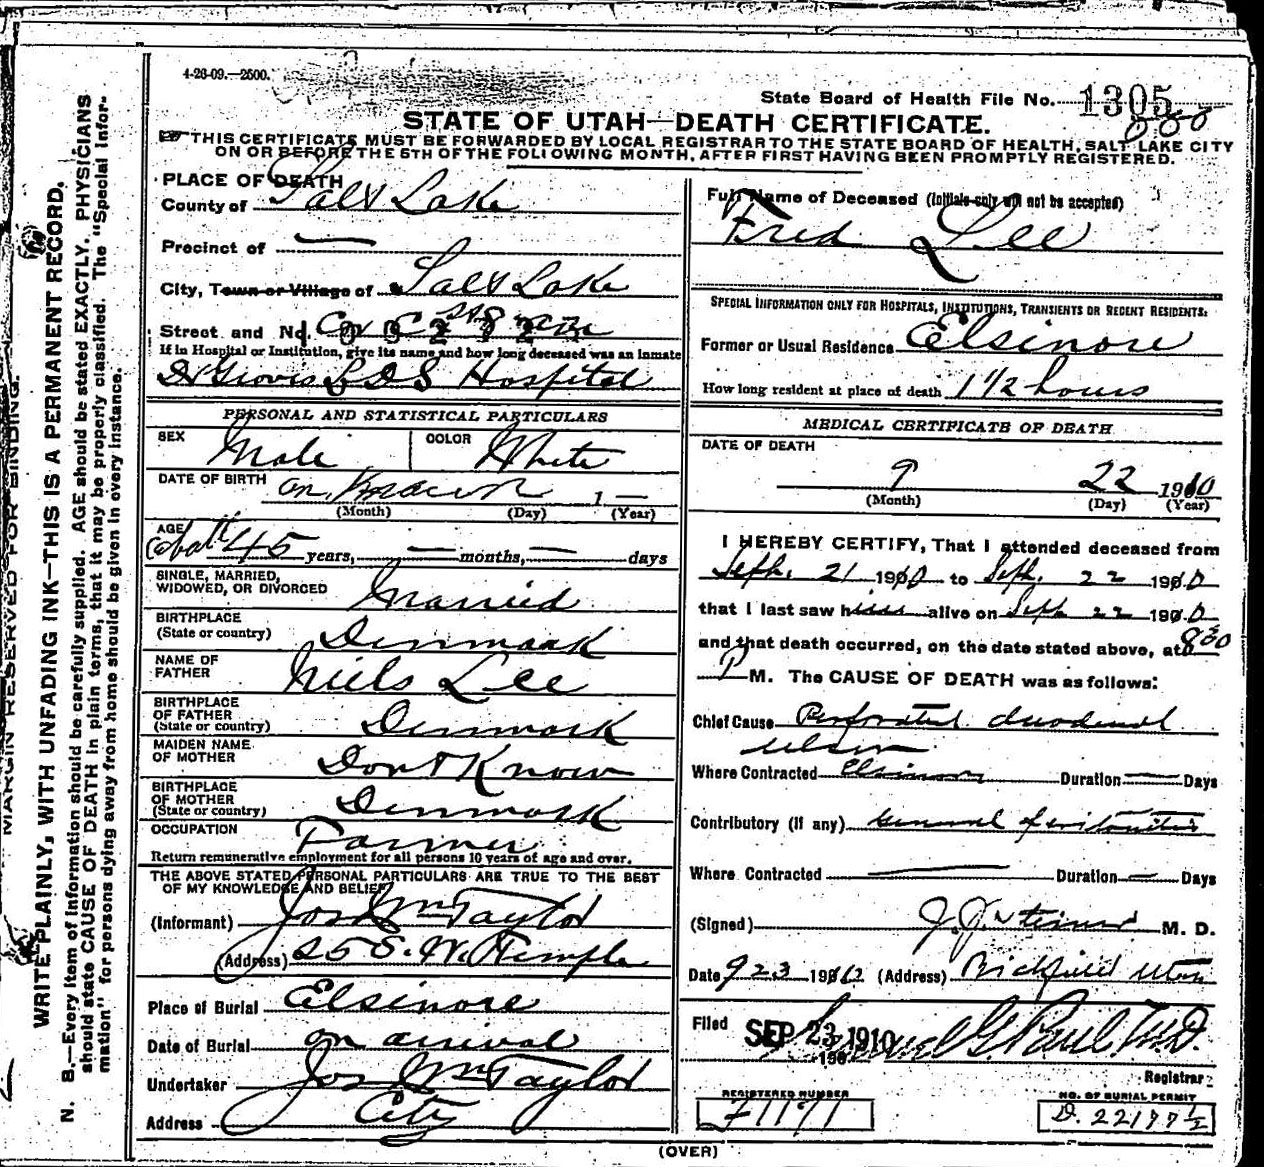 4-26-09.—2500.
State Board of Health File No. 1305
STATE OF UTAH—DEATH CERTIFICATE.
THIS CERTIFICATE MUST BE FORWARDED BY LOCAL REGISTRAR TO THE STATE BOARD OF HEALTH, SALT LAKE CITY
ON OR BEFORE THE 5TH OF THE FOLLOWING MONTH, AFTER FIRST HAVING BEEN PROMPTLY REGISTERED.
PLACE OF DEATH
County of Salt Lake
Precinct of —
City, Town or Village of Salt Lake
Street and No. Cor C St 8th Ave
If in Hospital or Institution, give its name and how long deceased was an inmate
Dr Groves L D S Hospital
PERSONAL AND STATISTICAL PARTICULARS
SEX Male COLOR White
DATE OF BIRTH 1 —
(Month) (Day) (Year)
AGE About 45 years, — months, — days
SINGLE, MARRIED, WIDOWED, OR DIVORCED Married
BIRTHPLACE (State or country) Denmark
NAME OF FATHER Niels Lee
BIRTHPLACE OF FATHER (State or country) Denmark
MAIDEN NAME OF MOTHER Dont Know
BIRTHPLACE OF MOTHER (State or country) Denmark
OCCUPATION Farmer
Return remunerative employment for all persons 10 years of age and over.
THE ABOVE STATED PERSONAL PARTICULARS ARE TRUE TO THE BEST
OF MY KNOWLEDGE AND BELIEF
(Informant) Jos Wm Taylor
(Address) 25 S. W. Temple
Place of Burial Elsinore
Date of Burial on arrival
Undertaker Jos Wm Taylor
Address City
Full Name of Deceased (Initials only will not be accepted)
Fred Lee
SPECIAL INFORMATION ONLY FOR HOSPITALS, INSTITUTIONS, TRANSIENTS OR RECENT RESIDENTS:
Former or Usual Residence Elsinore
How long resident at place of death 1 1/2 hours
MEDICAL CERTIFICATE OF DEATH
DATE OF DEATH
9 22 1910
(Month) (Day) (Year)
I HEREBY CERTIFY, That I attended deceased from
Sept. 21 1910 to Sept. 22 1910
that I last saw him alive on Sept 22 1910
and that death occurred, on the date stated above, at 930
P M. The CAUSE OF DEATH was as follows:
Chief Cause Perforated duodenal
ulcer
Where Contracted Elsinore Duration — Days
Contributory (if any) General peritonitis
Where Contracted — Duration — Days
(Signed) J. J. Steiner M. D.
Date 9 23 (Address) Richfield Utah
Filed SEP 23 1910 Samuel G. Paul, M.D.
190
Registrar
REGISTERED NUMBER
NO. OF BURIAL PERMIT
D. 22177 1/2
(OVER)
MARGIN RESERVED FOR BINDING.
WRITE PLAINLY, WITH UNFADING INK—THIS IS A PERMANENT RECORD.
N. B.—Every item of information should be carefully supplied. AGE should be stated EXACTLY. PHYSICIANS
should state CAUSE OF DEATH in plain terms, that it may be properly classified. The "Special Infor-
mation" for persons dying away from home should be given in every instance.